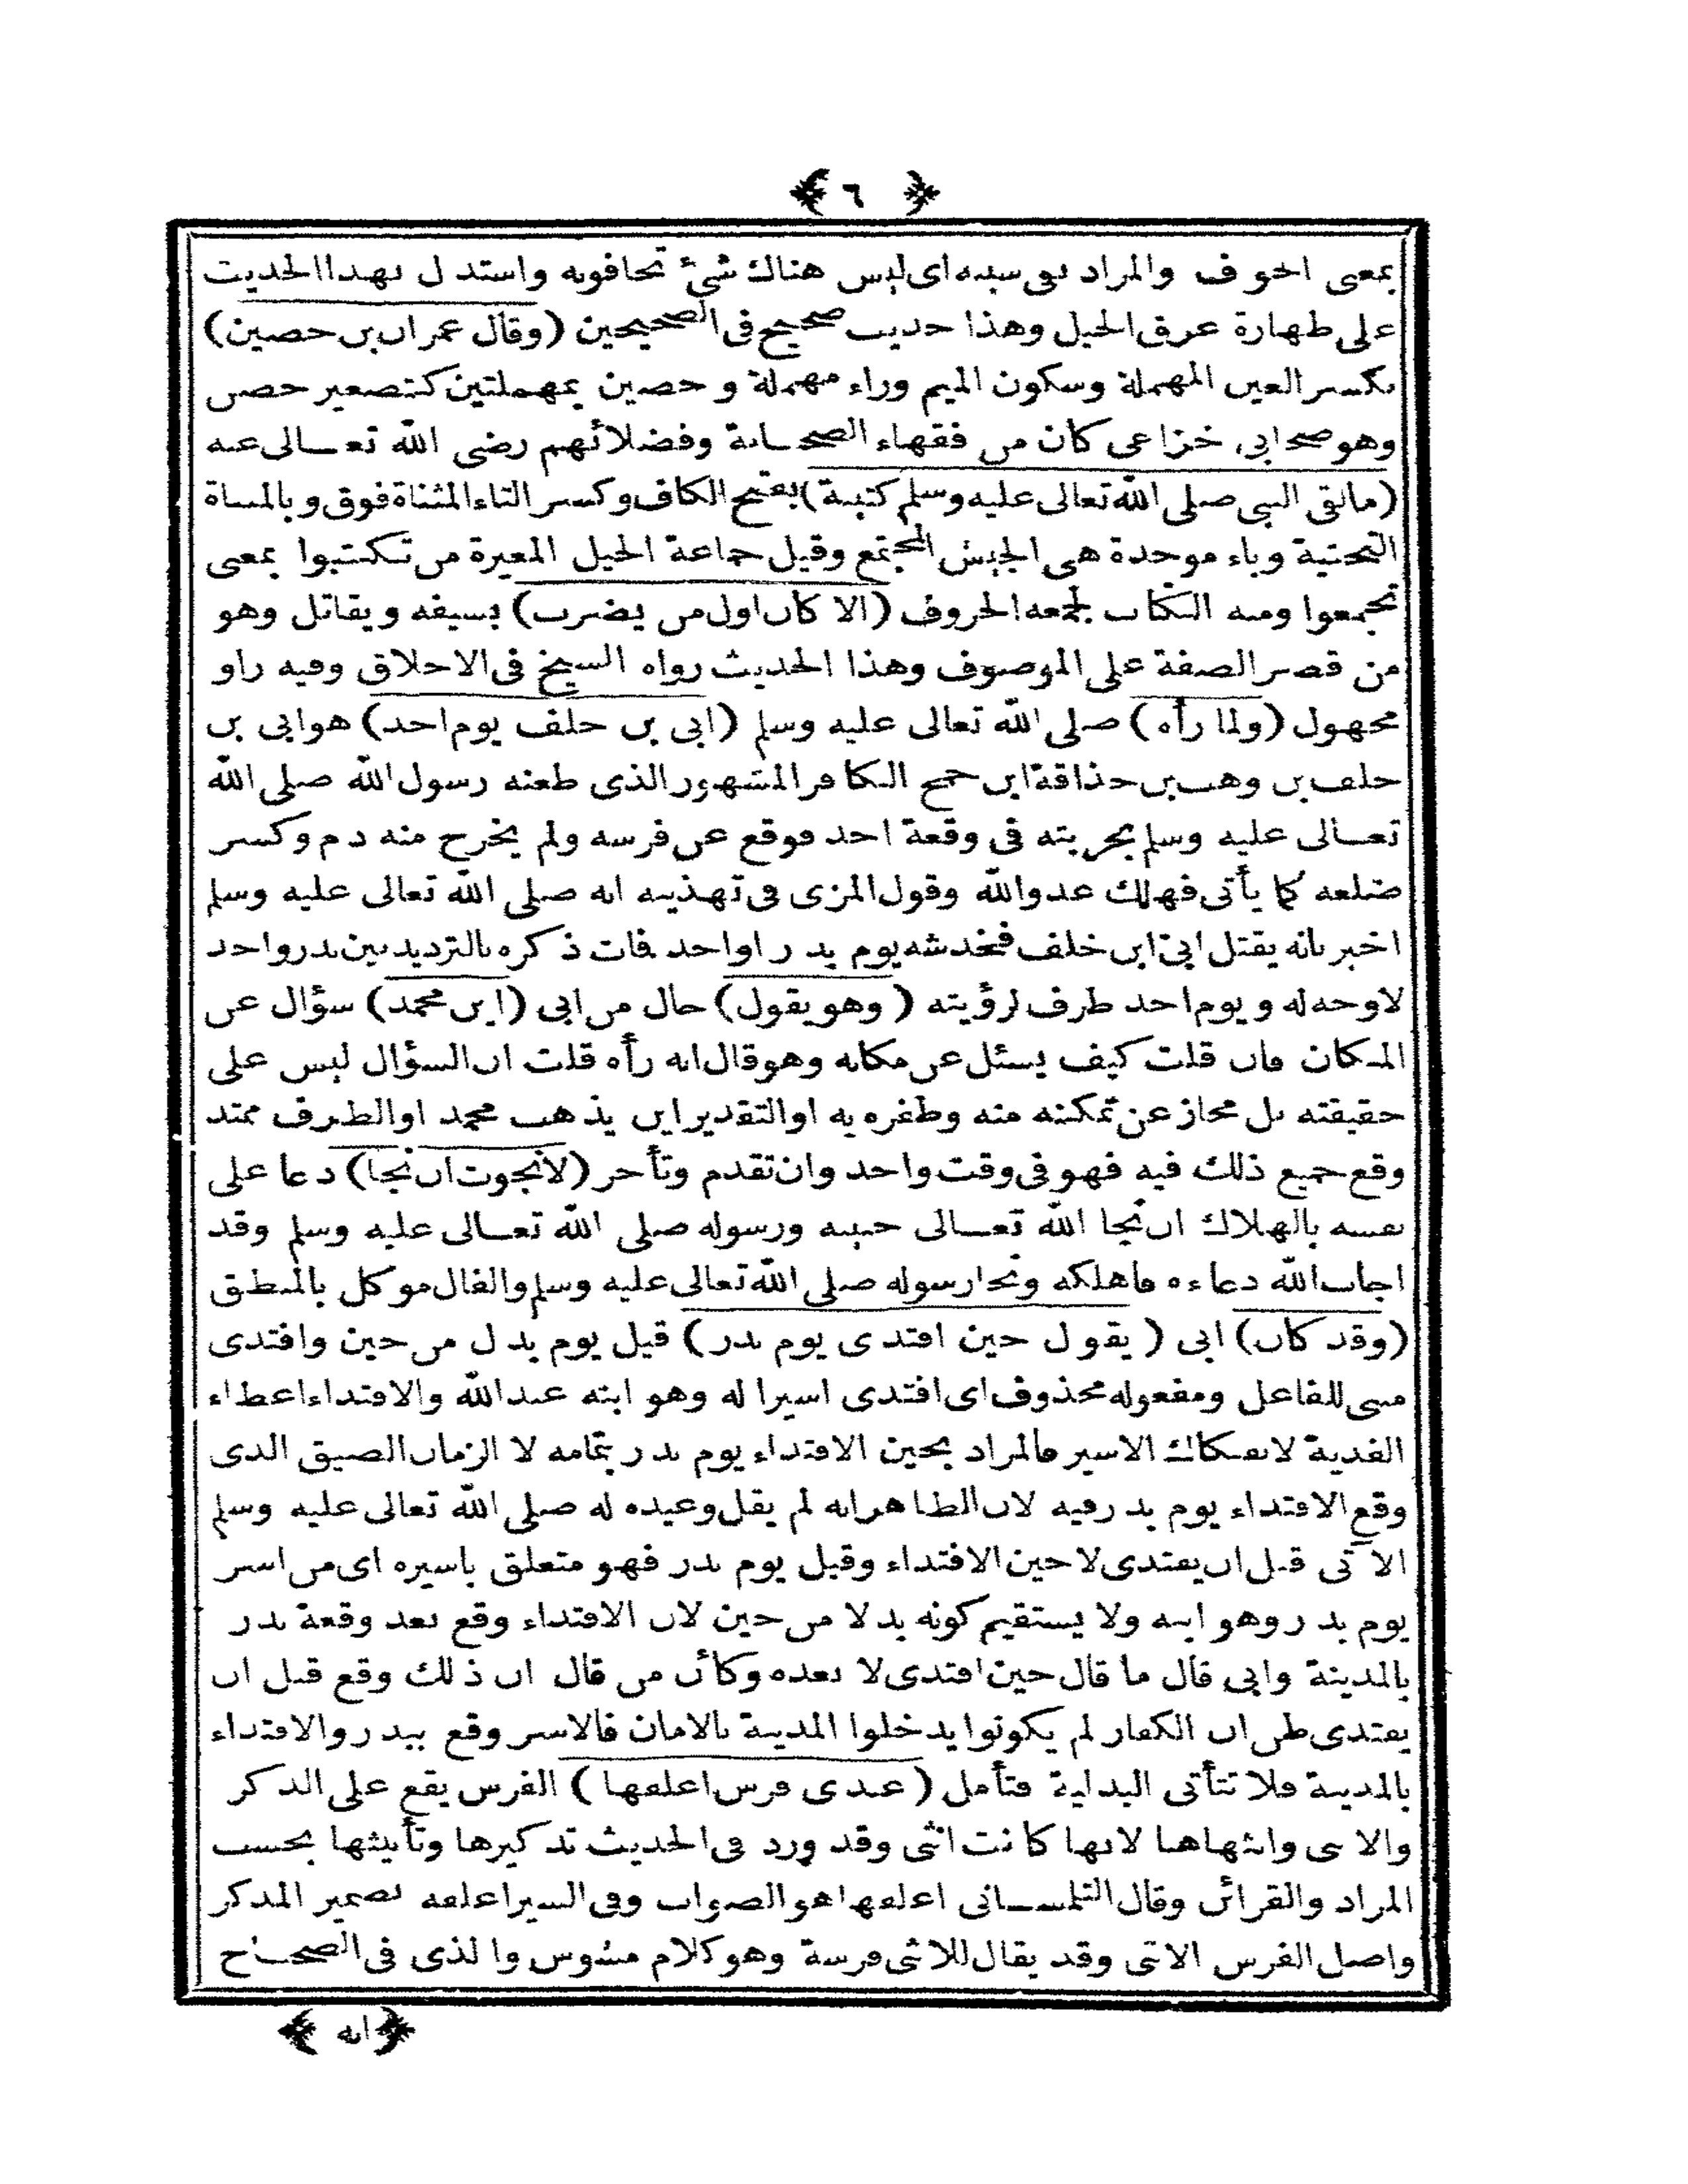 ﴿ ٦ ﴾
بمعنى الخوف والمراد نفى سببه اى ليس هناك شئ تخافونه واستدل بهذا الحديث
على طهارة عرق الخيل وهذا حديث صحيح فى الصحيحين (وقال عمران بن حصين)
بكسر العين المهملة وسكون الميم وراء مهملة و حصين بمهملتين كتصغير حصن
وهو صحابى خزاعى كان من فقهاء الصحابة وفضلائهم رضى الله تعالى عنه
(مالقى النبى صلى الله تعالى عليه وسلم كتيبة) بفتح الكاف وكسر التاء المثناة فوق وبالمثناة
التحتية وباء موحدة هى الجيش المجتمع وقيل جماعة الخيل المغيرة من تكتبوا بمعنى
تجمعوا ومنه الكتاب لجمعه الحروف (الا كان اول من يضرب) بسيفه ويقاتل وهو
من قصر الصفة على الموصوف وهذا الحديث رواه الشيخ فى الاخلاق وفيه راو
مجهول (ولما رأه) صلى الله تعالى عليه وسلم (ابى بن خلف يوم احد) هو ابى بن
خلف بن وهب بن حذاقة ابن جمح الكافر المشهور الذى طعنه رسول الله صلى الله
تعالى عليه وسلم بحربته فى وقعة احد فوقع عن فرسه ولم يخرج منه دم وكسر
ضلعه كما يأتى فهلك عدو الله وقول المزى فى تهذيبه انه صلى الله تعالى عليه وسلم
اخبر بانه يقتل ابىّ ابن خلف فخدشه يوم بدر او احد فات ذكره بالترديد بين بدر واحد
لا وجه له ويوم احد ظرف لرؤيته (وهو يقول) حال من ابى (اين محمد) سؤال عن
المكان فان قلت كيف يسئل عن مكانه وهو قال انه رأه قلت ان السؤال ليس على
حقيقته بل مجاز عن تمكنه منه وظفره به او التقدير اين يذهب محمد او الظرف ممتد
وقع جميع ذلك فيه فهو فى وقت واحد وان تقدم وتأخر (لانجوت ان نجا) دعا على
نفسه بالهلاك ان نجا الله تعالى حبيبه ورسوله صلى الله تعالى عليه وسلم وقد
اجاب الله دعاءه فاهلكه ونجا رسوله صلى الله تعالى عليه وسلم والفال موكل بالمنطق
(وقد كان) ابى (يقول حين افتدى يوم بدر) قيل يوم بدل من حين وافتدى
مبنى للفاعل ومفعوله محذوف اى افتدى اسيرا له وهو ابنه عبد الله والافتداء اعطاء
الفدية لانفكاك الاسير فالمراد بحين الافتداء يوم بدر بتمامه لا الزمان الضيق الذى
وقع الافتداء يوم بدر فيه لان الظاهر انه لم يقل وعيده له صلى الله تعالى عليه وسلم
الآتى قبل ان يفتدى لا حين الافتداء وقيل يوم بدر فهو متعلق باسيره اى من اسر
يوم بدر وهو ابنه ولا يستقيم كونه بدلا من حين لان الافتداء وقع بعد وقعة بدر
بالمدينة وابى قال ما قال حين افتدى لا بعده وكأن من قال ان ذلك وقع قبل ان
يفتدى ظن ان الكفار لم يكونوا يدخلوا المدينة بالامان فالاسر وقع ببدر والافتداء
بالمدينة فلا تتأتى البدلية فتأمل (عندى فرس اعلفها) الفرس يقع على الذكر
والانثى وانثها هنا لانها كانت انثى وقد ورد فى الحديث تذكيرها وتأنيثها بحسب
المراد والقرائن وقال التلمسانى اعلفها هو الصواب وفى السير اعلفه بضمير المذكر
واصل الفرس الانثى وقد يقال للانثى فرسة وهو كلام مشوش والذى فى الصحاح
﴿ انه ﴾